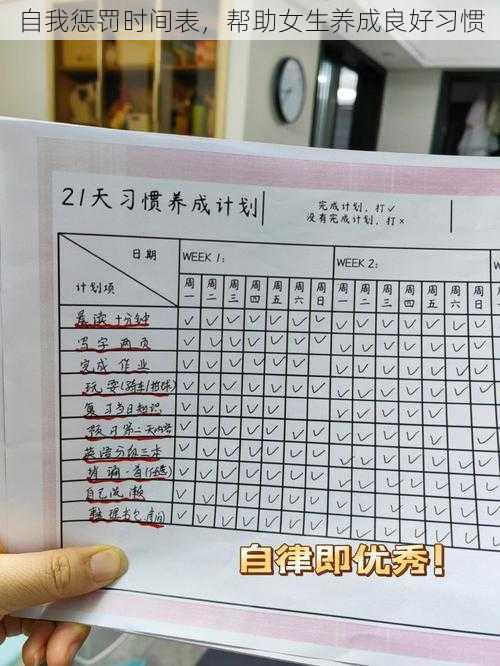 自我惩罚时间表，帮助女生养成良好习惯
21天习惯养成计划
完成计划，打✓
没有完成计划，打×
日期
计划项
WEEK 1：
WEEK 2：
周一 周二 周三 周四 周五 周六 周日 周一 周二 周三 周四 周五 周六 周日
晨读十分钟
写字两页
完成作业
玩耍(骑车/拍球)
复习当日知识
预习第二天内容
英语分级三本
背诵一首(任选)
自己洗漱
整理书包、房间
自律即优秀！